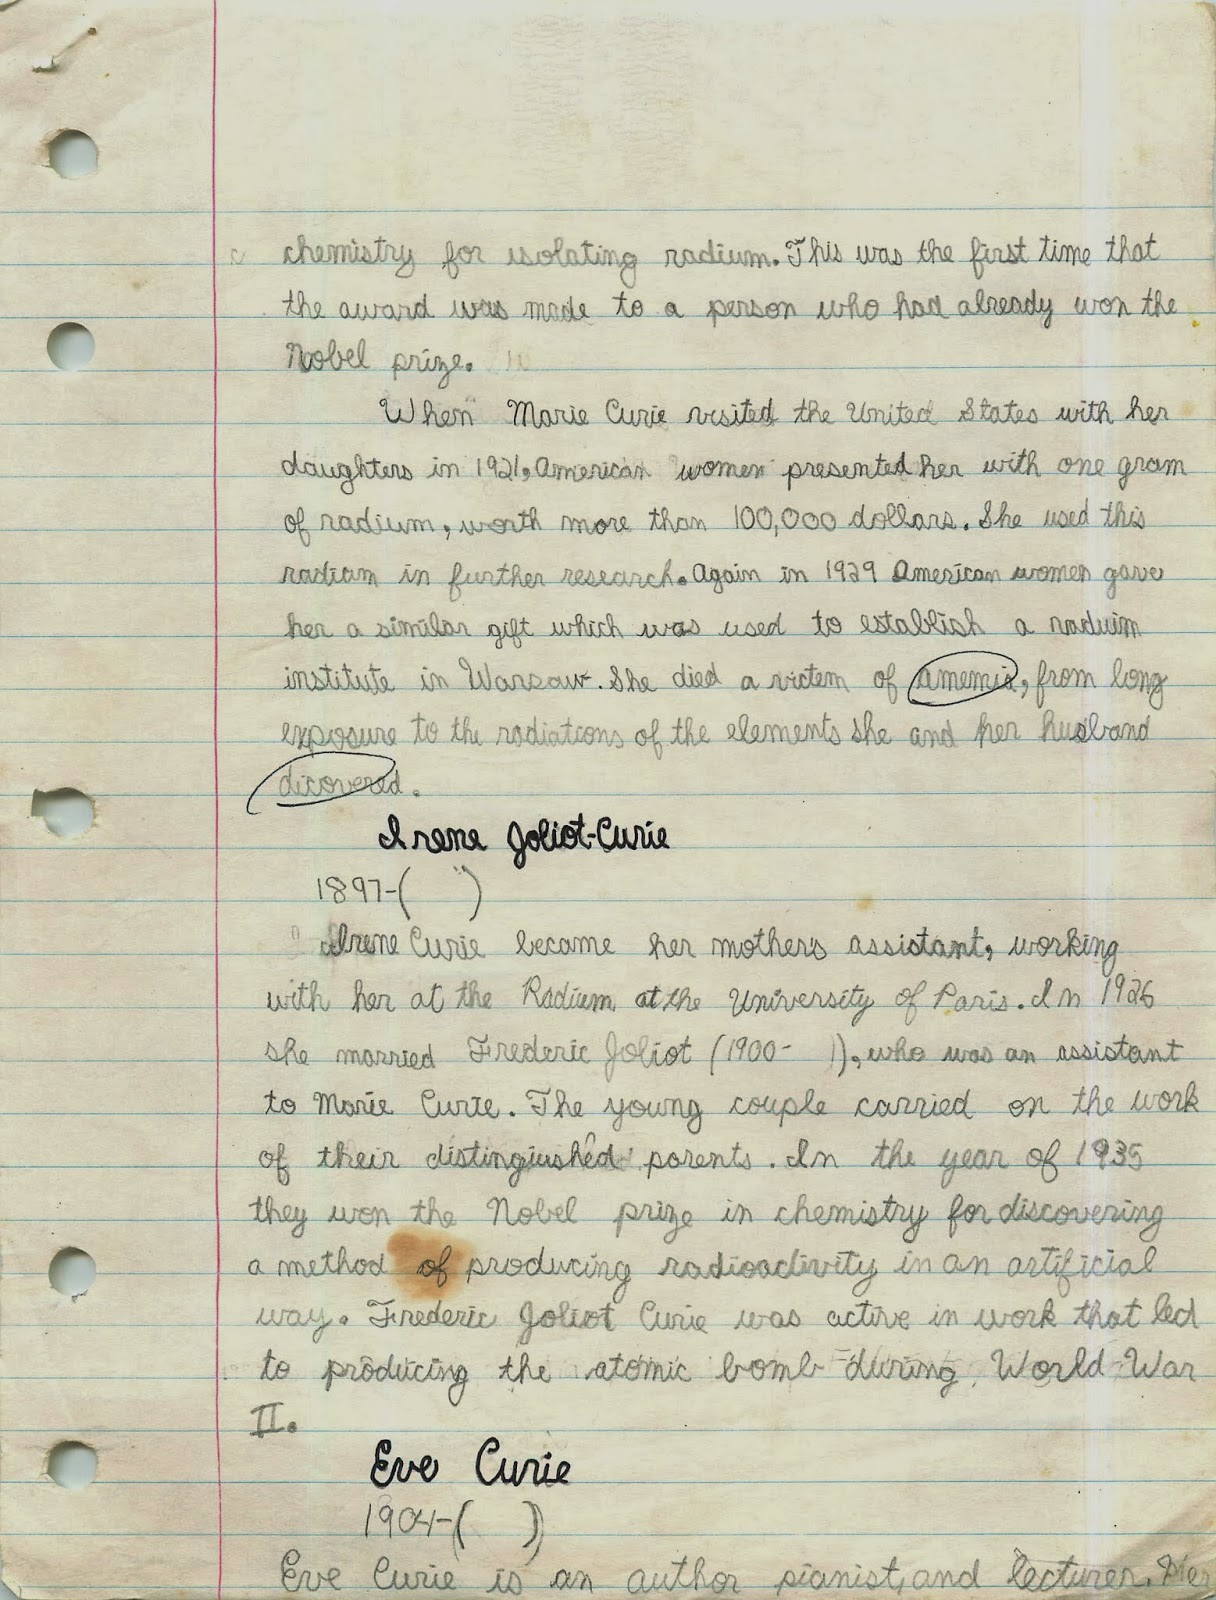 chemistry for isolating radium. This was the first time that
the award was made to a person who had already won the
Nobel prize.
When Marie Curie visited the United States with her
daughters in 1921, American women presented her with one gram
of radium, worth more than 100,000 dollars. She used this
radium in further research. Again in 1929 American women gave
her a similar gift which was used to establish a raduim
institute in Warsaw. She died a victem of amemia, from long
exposure to the radiations of the elements she and her husband
dicovered.
Irene Joliot-Curie
1897-( )
Irene Curie became her mothers assistant, working
with her at the Radium at the University of Paris. In 1926
she married Frederic Joliot (1900- ), who was an assistant
to Marie Curie. The young couple carried on the work
of their distingiushed parents. In the year of 1935
they won the Nobel prize in chemistry for discovering
a method of producing radioactivity in an artificial
way. Frederic Joliot Curie was active in work that led
to producing the atomic bomb during World War
II.
Eve Curie
1904-( )
Eve Curie is an author pianist, and lecturer. Her